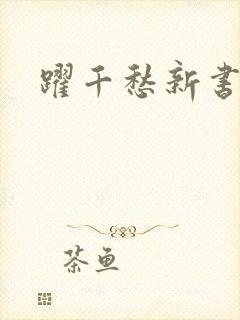 躍千愁新書
茶鱼